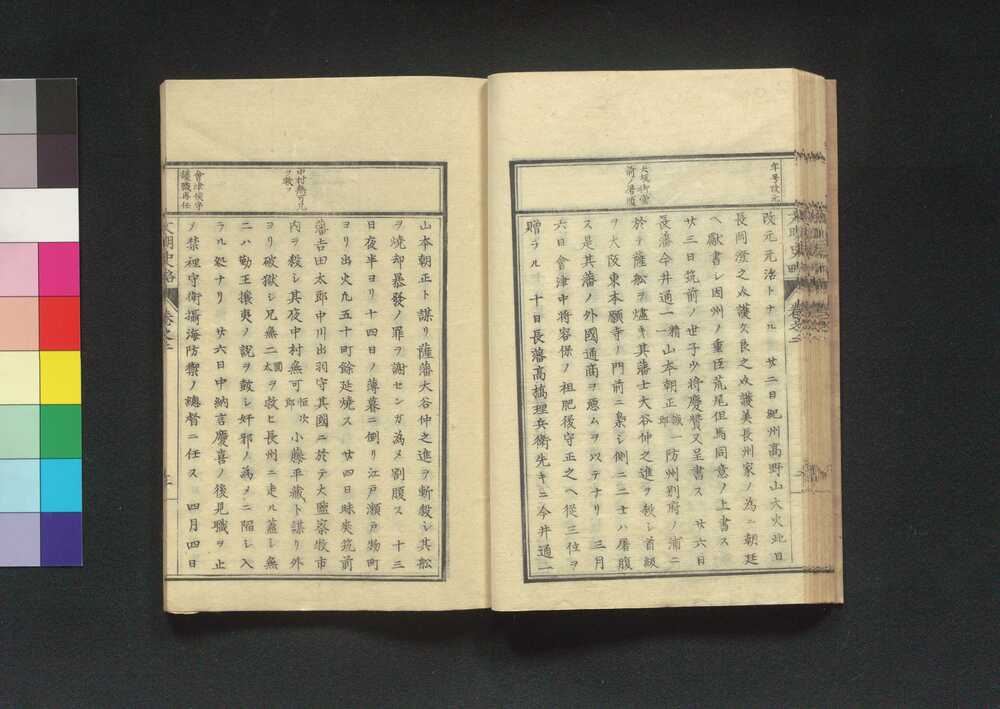 年号改元
改元元治トナル 廿二日紀州高野山大火此日
長岡澄之亟護久良之亟護美長州家ノ為ニ朝廷
ヘ獻書シ因州ノ重臣荒尾但馬同意ノ上書ス
廿三日筑前ノ世子少将慶賛又呈書ス 廿六日
長藩今井通一 山本朝正 防州別府ノ浦ニ
於テ薩船ヲ燼キ其藩士大谷仲之進ヲ殺シ首級
ヲ大阪東本願寺ノ門前ニ梟シ側ニ二士ハ屠腹
ス是其藩ノ外國通商ヲ悪ムヲ以テナリ 三月
六日會津中将容保ノ祖肥後守正之ヘ從三位ヲ
贈ラル 十日長藩高橋理兵衛先キニ今井通一
大坂御堂
前ノ屠腹
山本朝正ト謀リ薩藩大谷仲之進ヲ斬殺シ其船
ヲ焼却暴發ノ罪ヲ謝センガ為メ割腹ス 十三
日夜半ヨリ十四日ノ薄暮ニ倒リ江戸瀬戸物町
ヨリ出火九五十町餘延焼ス 廿四日昧爽筑前
藩吉田太郎中川出羽守其國ニ於テ大監察牧市
内ヲ殺シ其夜中村無可 恒次郎 小藤平蔵ト謀リ外
ヨリ破獄シ兄無二 圓太 ヲ救ヒ長州ニ走ル蓋シ無
二ハ勤王攘夷ノ説ヲ鼓シ奸邪ノ為メニ陥シ入
ラル処ナリ 廿六日中納言慶喜ノ後見職ヲ止
メ禁裡守衛攝海防禦ノ總督ニ任ス 四月四日
中村無可兄
ヲ救フ
會津候守
護職再任